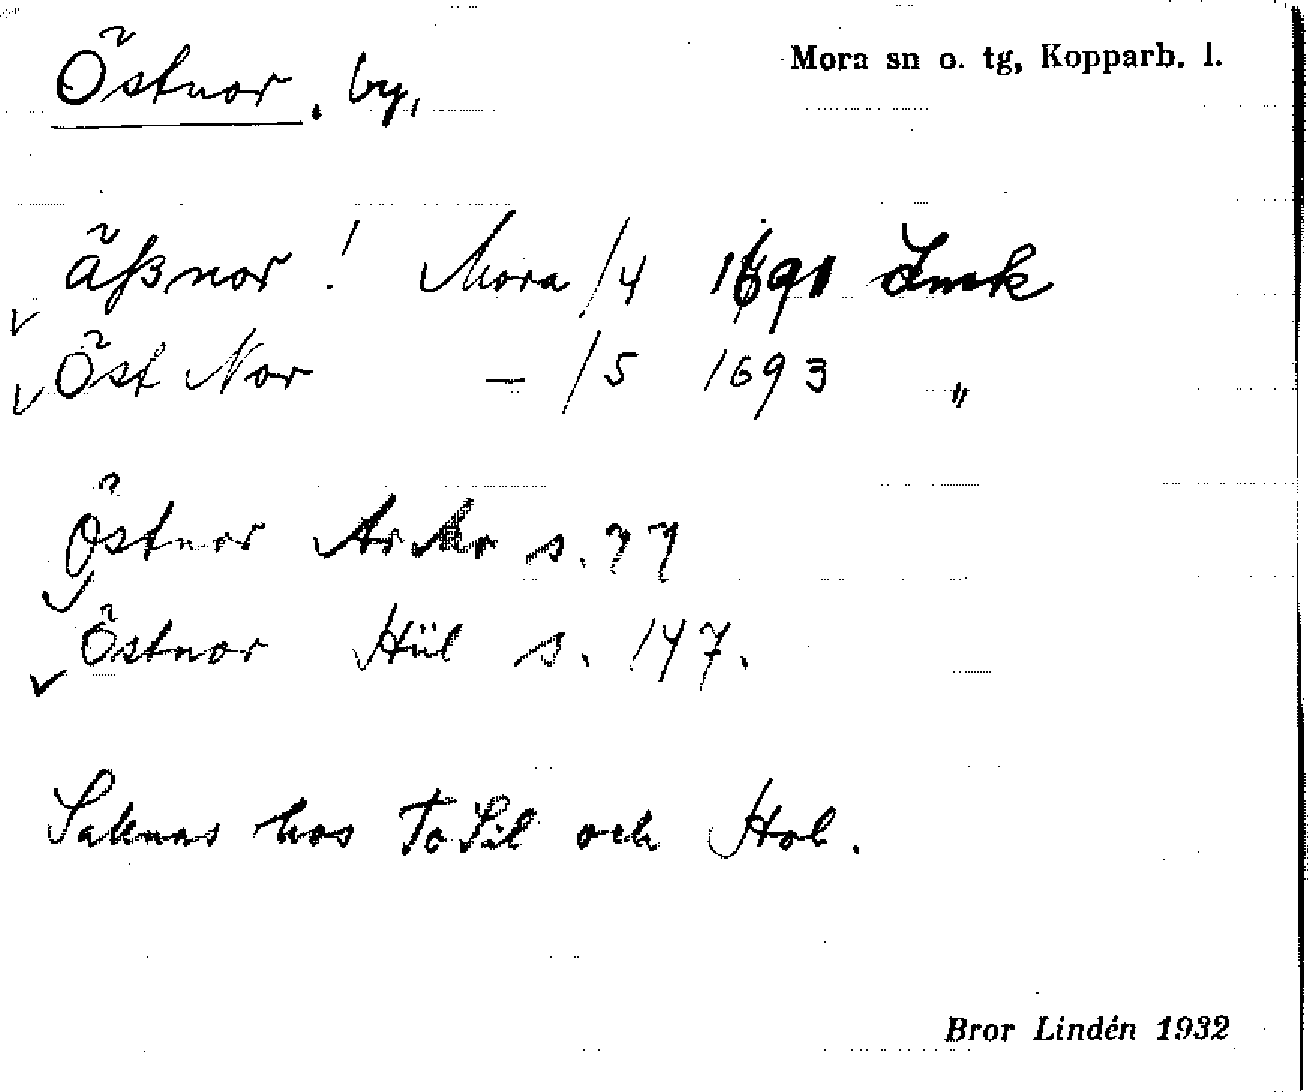 Östnor, by,
Mora sn o. tg, Kopparb. l.
äßnor! Mora /4 1691 Lmk
Öst Nor — /5 1693 "
Östnor s. 77
Östnor Hül s. 147.
Saknas hos ToSil och Hol.
Bror Lindén 1932